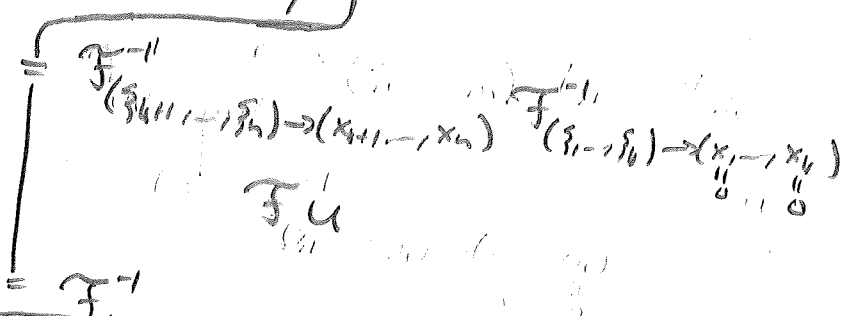 = F⁻¹ (ξₖ₊₁, ..., ξₙ)→(xₖ₊₁, ..., xₙ) F⁻¹ (ξ₁, ..., ξₖ)→(x₁, ..., xₖ)
‖ ‖
0 0
F u
= F⁻¹